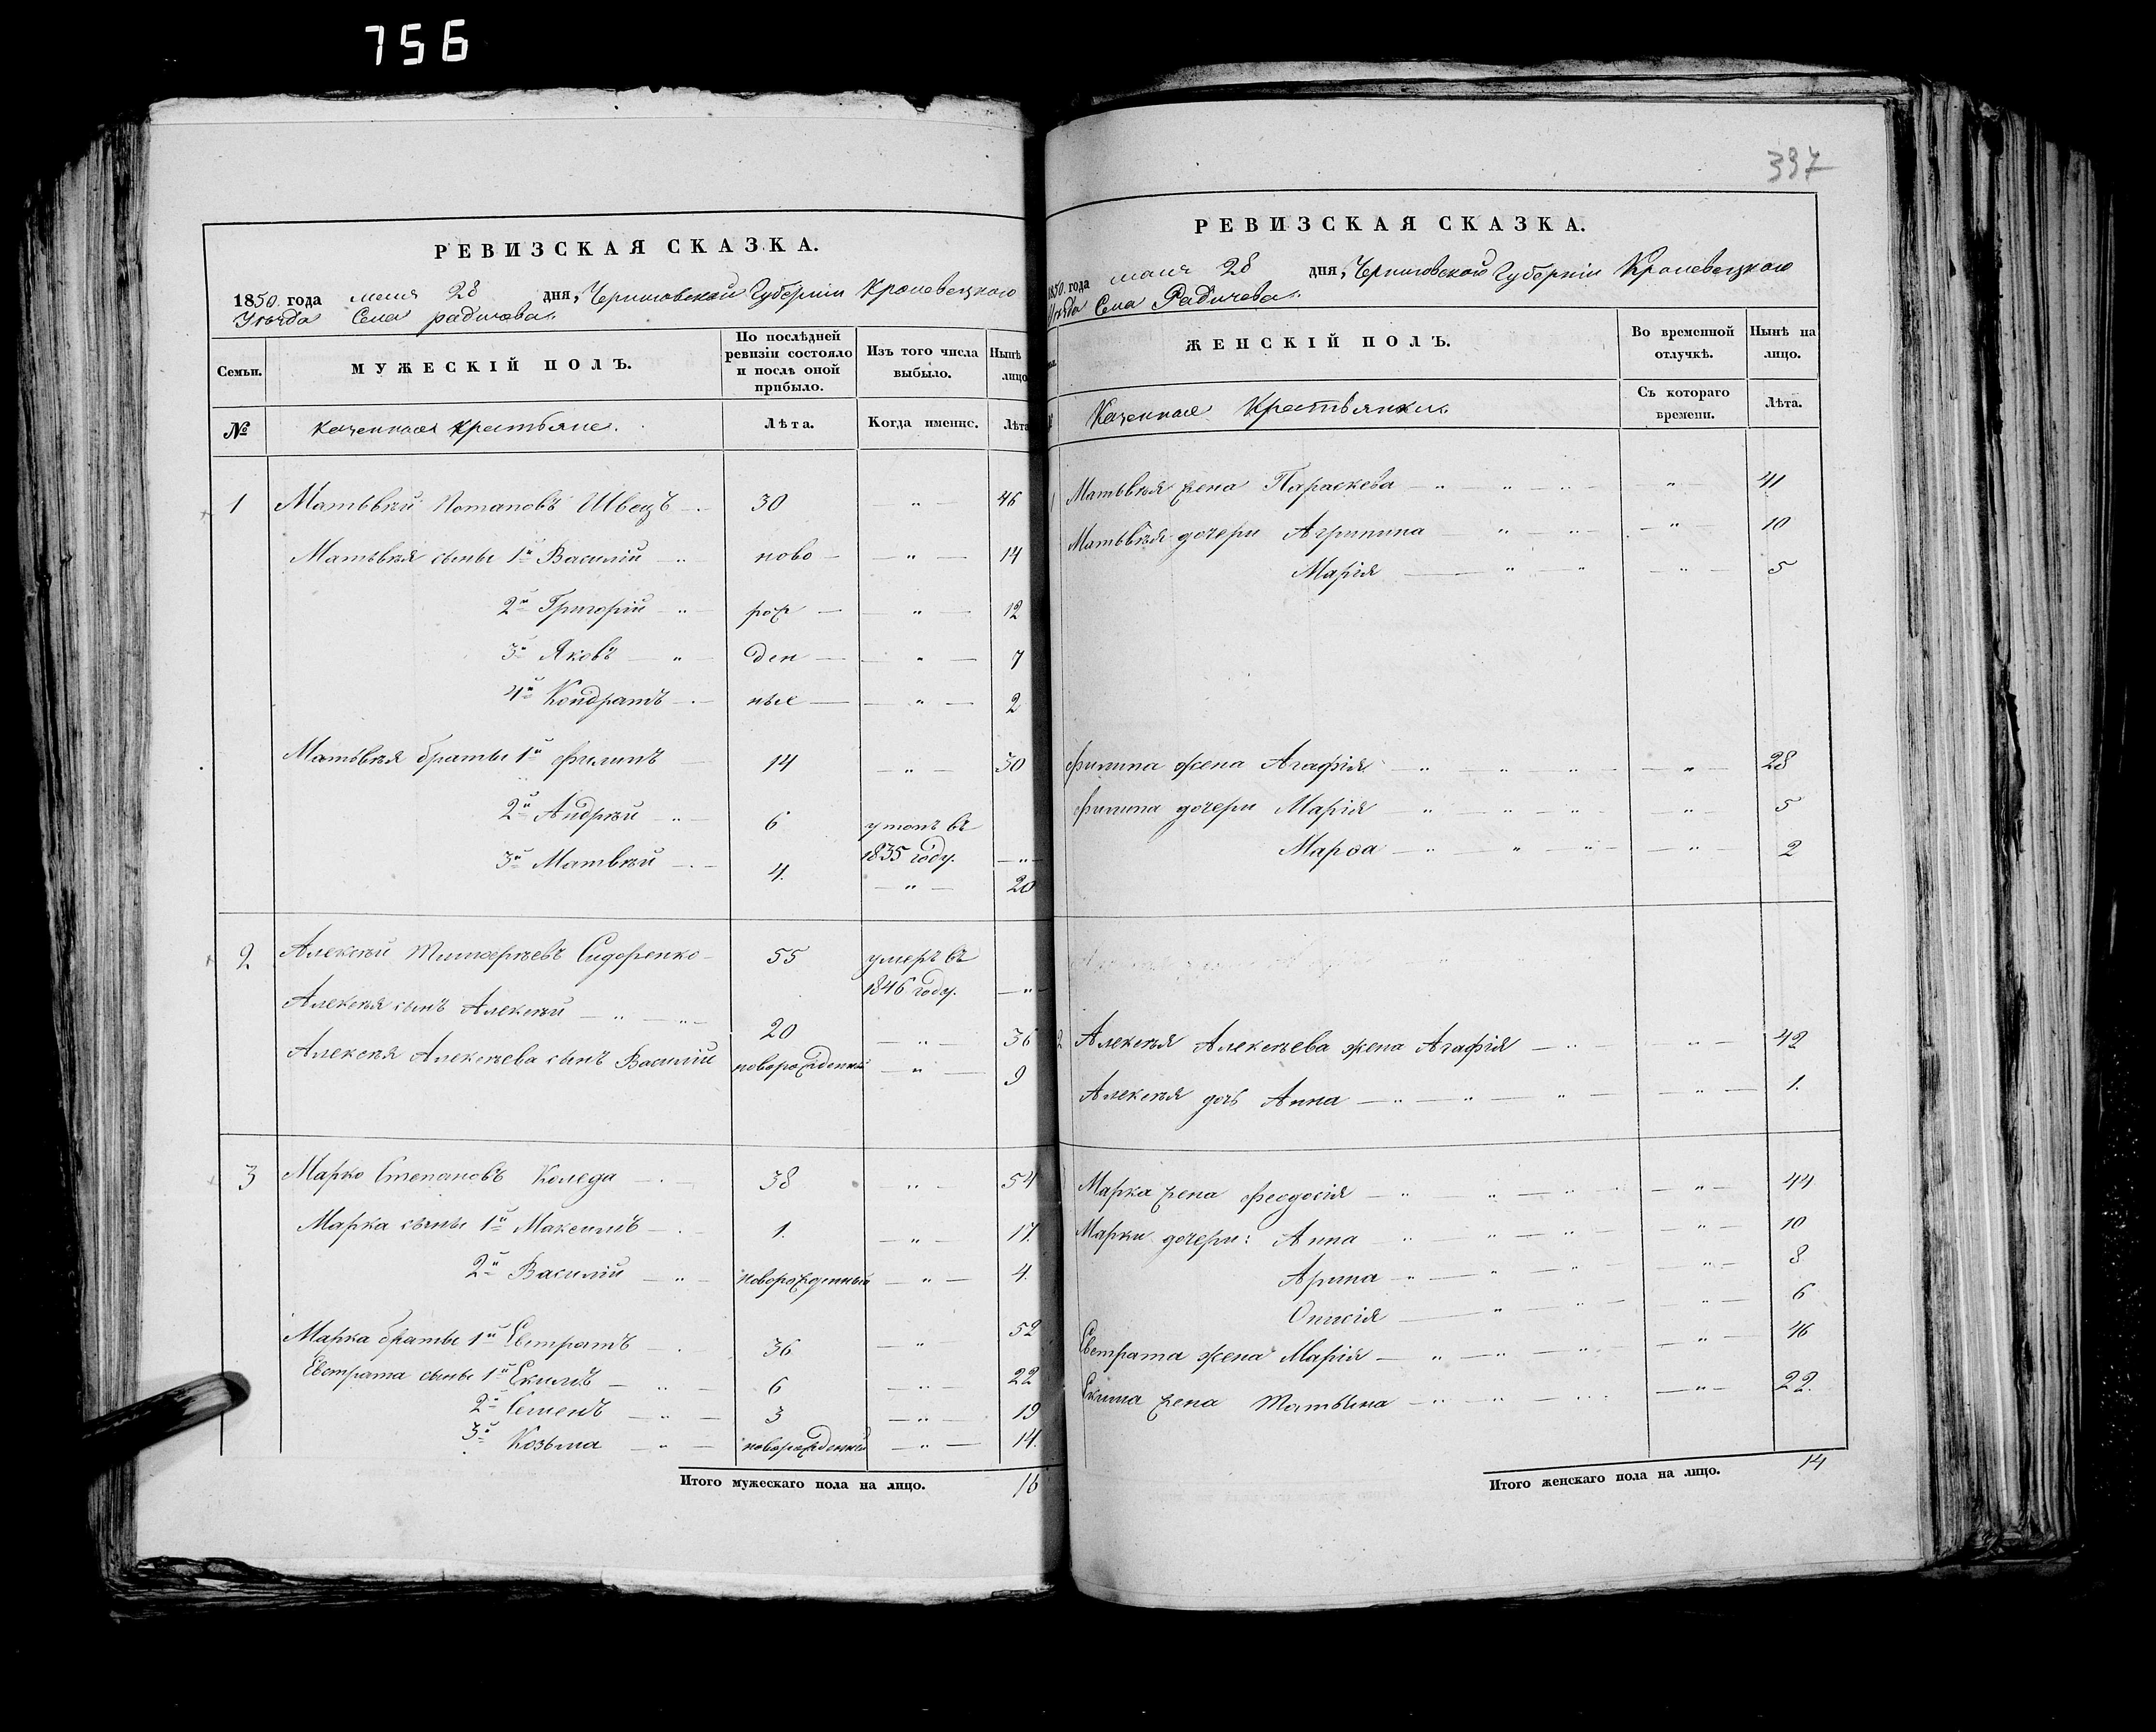 756
РЕВИЗСКАЯ СКАЗКА.
1850. года маія 28 дня, Черниговской Губерніи Кролевецкого
Уѣзда Села радичева.
Семьи. МУЖЕСКІЙ ПОЛЪ. По послѣдней ревизіи состояло и послѣ оной прибыло. Изъ того числа выбыло. Нынѣ лицо
№ Казенныя крестьяне. Лѣта. Когда именнс. Лѣта
1 Матьвѣй Потаповъ Швецъ 30 46
Матьвѣя сыны 1й Василій ново 14
2й Григорій рож 12
3й Яковъ ден 7
4й Кондратъ ные 2
Матьвѣя братьи 1й Филипъ 14 30
2й Андрѣй 6 утопъ въ 1835 году.
3й Матвѣй 4. 20
2. Алексѣй Тимофѣевъ Сидоренко 55 умеръ въ 1846 году.
Алексѣя сынъ Алексѣй 20 36
Алексѣя Алексѣева сынъ Василій новорожденный 9
3 Марко Степановъ Коледа 38 54
Марка сыны 1й Максимъ 1. 17.
2й Василій новорожденный 4.
Марка братьи 1й Евстратъ 36 52
Евстрата сыны 1й Екимъ 6 22
2й Семенъ 3 19
3й Козьма новорожденный 14.
Итого мужескаго пола на лицо. 16
397
РЕВИЗСКАЯ СКАЗКА.
1850. года маія 28 дня, Черниговской Губерніи Кролевецкого
Уѣзда Села Радичева.
ЖЕНСКІЙ ПОЛЪ. Во временной отлучкѣ. Нынѣ на лицо.
Казенныя Крестьянки. Съ котораго времени. Лѣта.
1 Матьвѣя жена Параскева 41
Матьвѣя дочери Агрипина 10
Марія 5
Филипа жена Агафія 28
Филипа дочери Марія 5
Марѳа 2
2 Алексѣя Алексѣева жена Агафія 42
Алексѣя дочь Анна 1.
Марка жена Феодосія 44
Марки дочери: Анна 10
Арина 8
Онисія 6
Евстрата жена Марія 46
Екима жена Татьяна 22.
Итого женскаго пола на лицо. 14